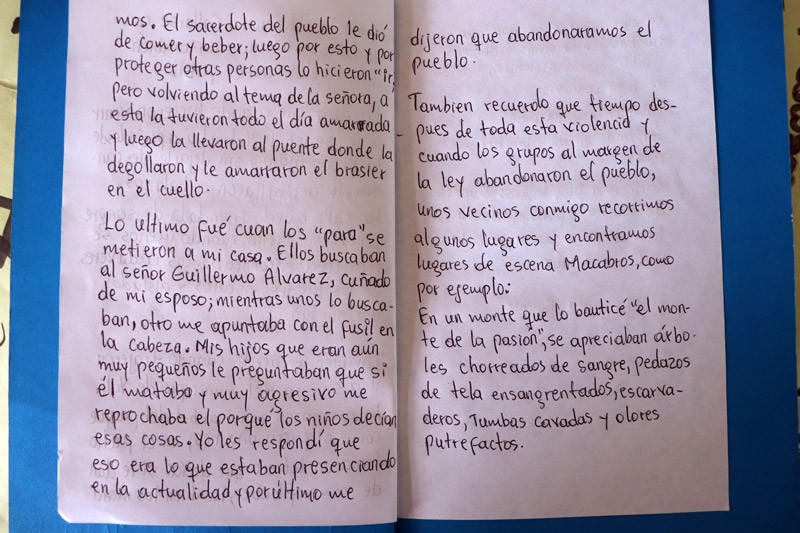 mos. El sacerdote del pueblo le dió
de comer y beber; luego por esto y por
proteger otras personas lo hicieron "ir,
pero volviendo al tema de la señora, a
esta la tuvieron todo el día amarrada
y luego la llevaron al puente donde la
degollaron y le amarraron el brasier
en el cuello.
Lo ultimo fué cuan los "para" se
metieron a mi casa. Ellos buscaban
al señor Guillermo Alvarez, cuñado
de mi esposo; mientras unos lo busca-
ban, otro me apuntaba con el fusil en
la cabeza. Mis hijos que eran aún
muy pequeños le preguntaban que si
él mataba y muy agresivo me
reprochaba el porque los niños decían
esas cosas. Yo les respondí que
eso era lo que estaban presenciando
en la actualidad y por último me
dijeron que abandonaramos el
pueblo.
Tambien recuerdo que tiempo des-
pues de toda esta violencia y
cuando los grupos al margen de
la ley abandonaron el pueblo,
unos vecinos conmigo recorrimos
algunos lugares y encontramos
lugares de escena Macabros, como
por ejemplo:
En un monte que lo bauticé "el mon-
te de la pasion", se apreciaban árbo-
les chorreados de sangre, pedazos
de tela ensangrentados, escarva-
deros, Tumbas cavadas y olores
putrefactos.